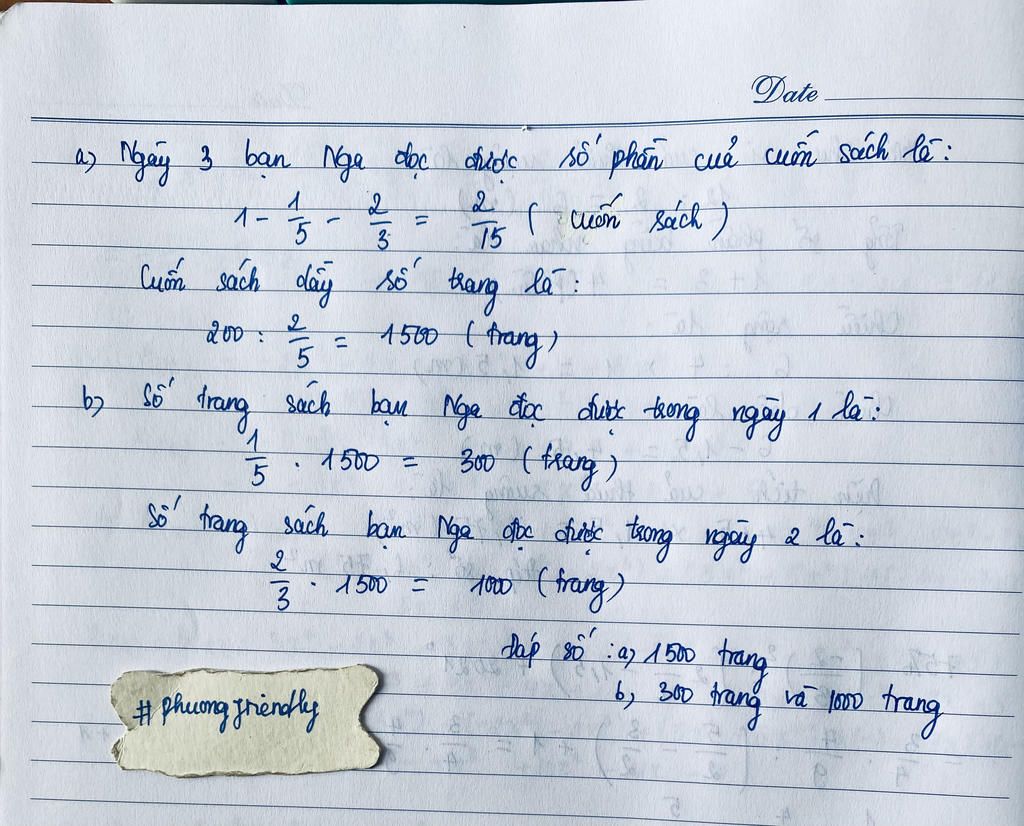 Date
a) Ngày 3 bạn Nga đọc được số phần cuả cuốn sách là:
1 - 1/5 - 2/3 = 2/15 ( cuốn sách )
Cuốn sách dầy số trang là:
200 : 2/5 = 1500 ( trang )
b) Số trang sách bạn Nga đọc được trong ngày 1 là:
1/5 . 1500 = 300 ( trang )
Số trang sách bạn Nga đọc được trong ngày 2 là:
2/3 . 1500 = 1000 ( trang )
Đáp số : a, 1500 trang
b, 300 trang và 1000 trang
#phuongfriendly